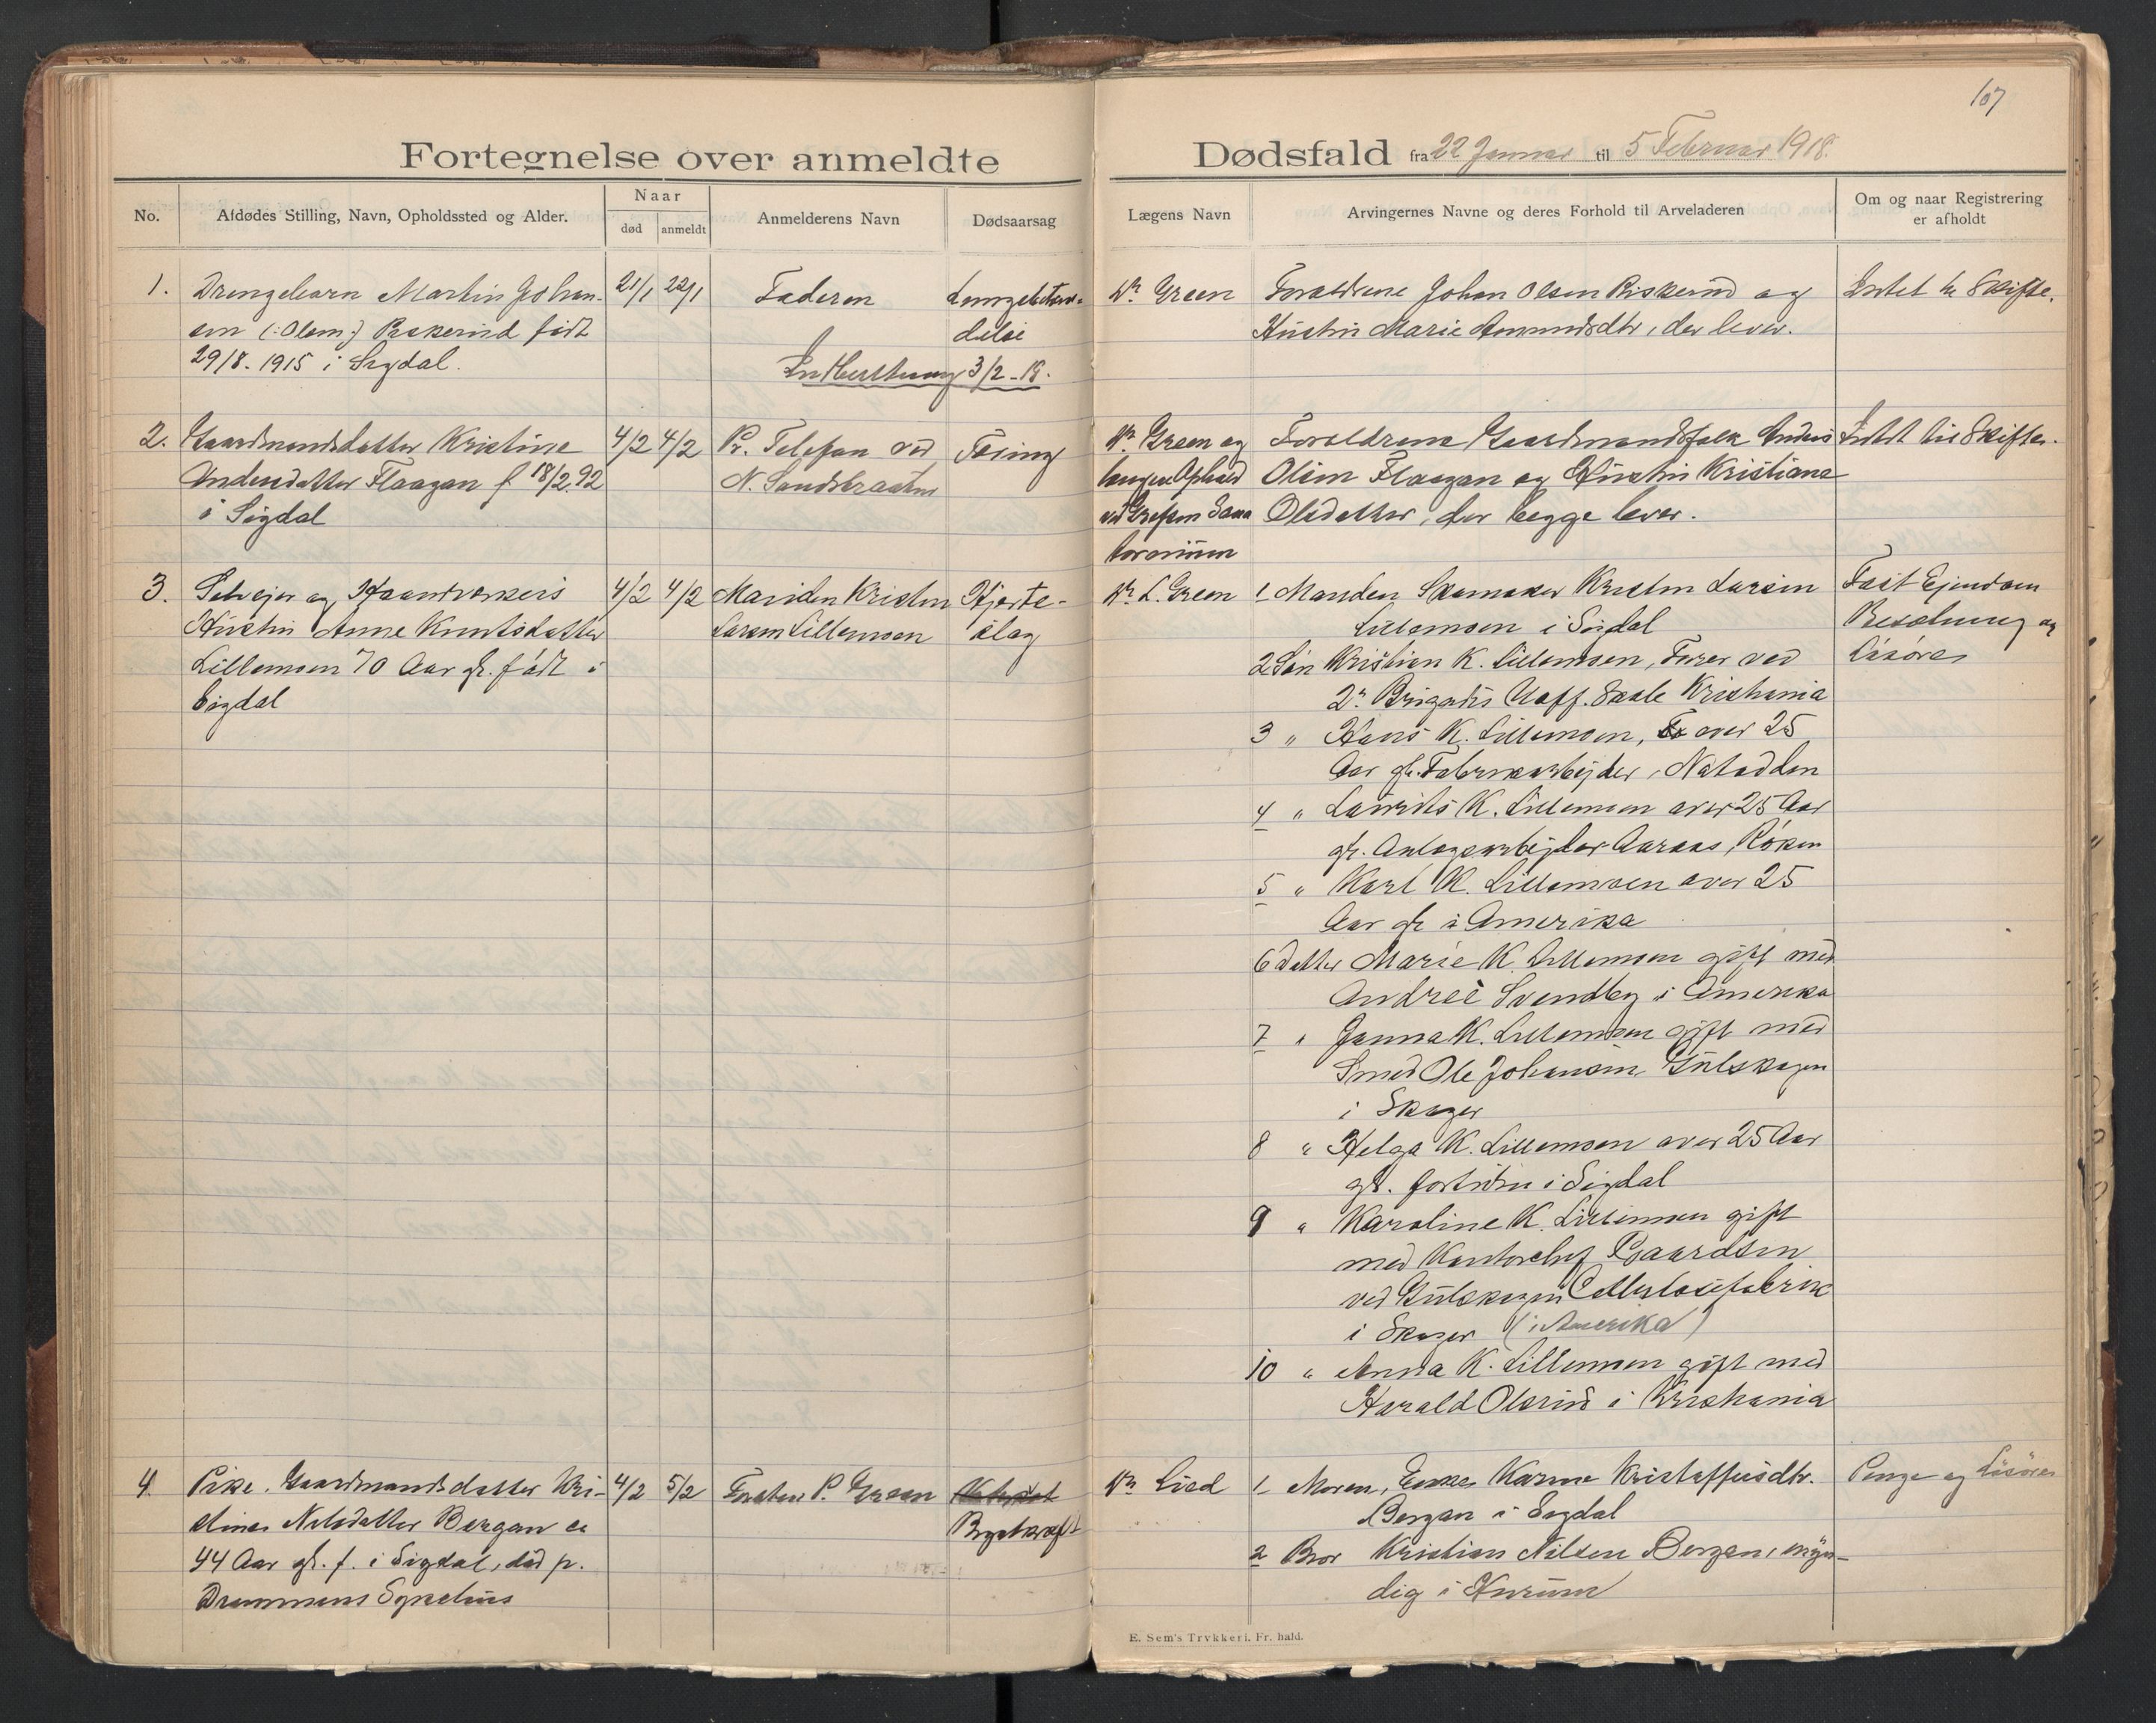 107
Fortegnelse over anmeldte
Dødsfald fra 22 Januar til 5 Februar 1918.
No.
Afdødes Stilling, Navn, Opholdssted og Alder.
Naar
død
anmeldt
Anmelderens Navn
Dødsaarsag
Lægens Navn
Arvingernes Navne og deres Forhold til Arveladeren
Om og naar Registrering
er afholdt
1.
Drengebarn Martin Johan-
sen (:Olsen:) Riskerud født
29/8. 1915 i Sigdal.
21/1
22/1
Faderen
Lungebeten-
delse
3/2-18.
Dr. Green
Forældrene Johan Olsen Riskerud og
Hustru Marie Amundsdtr, der lever.
Intet til Skifte.
2.
Gaardmandsdatter Kristine
Andersdatter Flaagan f 18/2.92
i Sigdal
4/2
4/2
Pr. Telefon ved
N. Sandsbraaten
Tæring
Dr. Green og
længere Ophold
ved Grefsen Sana
torium
Forældrene Gaardmandsfolk Anders
Olsen Flaagan og Hustru Kristiane
Olsdatter, der begge lever.
Intet til Skifte.
3.
Selveier og Haandverkers
Hustru Anne Knutsdatter
Lillemoen 70 Aar gl. født i
Sigdal
4/2
4/2
Manden Kristen
Larsen Lillemoen
Hjerte-
slag
Dr. L. Green
1 Manden Skomaker Kristen Larsen
Lillemoen i Sigdal
2 Søn Kristian K. Lillemoen, Furer ved
2n Brigades Uoff. Skole Kristiania
3 " Hans K. Lillemoen, over 25
Aar gl. Fabrikarbeider, Notodden
4 " Laurits K. Lillemoen over 25 Aar
gl. Anlægsarbeider Aaraas, Røken
5 " Karl K. Lillemoen over 25
Aar gl i Amerika
6 datter Marie K. Lillemoen gift med
Andreè Svendby i Amerika
7 " Janna K. Lillemoen gift med
Smed Ole Johansen, Gulskogen
i Skoger
8 " Helga K. Lillemoen over 25 Aar
gl. for tiden i Sigdal
9 " Karoline K. Lillemoen gift
med Kontorchef Baardsen
ved Gulskogen Cellulosefabrik
i Skoger (i Amerika)
10 " Anna K. Lillemoen gift med
Harald Olsrud i Kristiania
Fast Eiendom
Besætning og
Løsøre
4.
Pike. Gaardmandsdatter Kri-
stine Nilsdatter Bergan ca
44 Aar gl. f. i Sigdal, død p.
Drammens Sykehus
4/2
5/2
Forstm. P. Green
Brystkræft
Dr. Lied
1 Moren, Enke Karine Kristoffersdtr.
Bergan i Sigdal
2 Bror Kristian Nilsen Bergan, myn-
dig i Hurum
Penge og Løsøre
E. Sem's Trykkeri, Fr. hald.